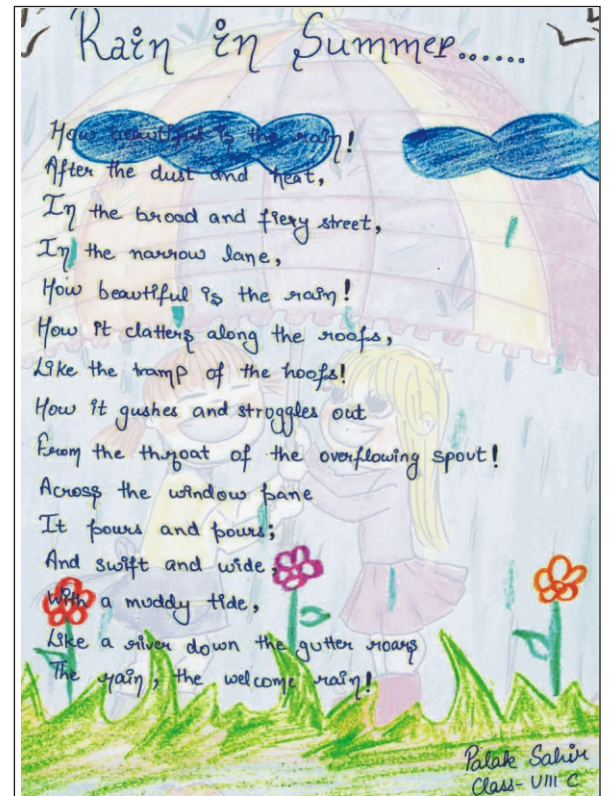 Rain in Summer......
How beautiful is the rain!
After the dust and heat,
In the broad and fiery street,
In the narrow lane,
How beautiful is the rain!
How it clatters along the roofs,
Like the tramp of the hoofs!
How it gushes and struggles out
From the throat of the overflowing spout!
Across the window pane
It pours and pours;
And swift and wide,
With a muddy tide,
Like a river down the gutter roars
The rain, the welcome rain!
Palak Sahir
Class- VIII C